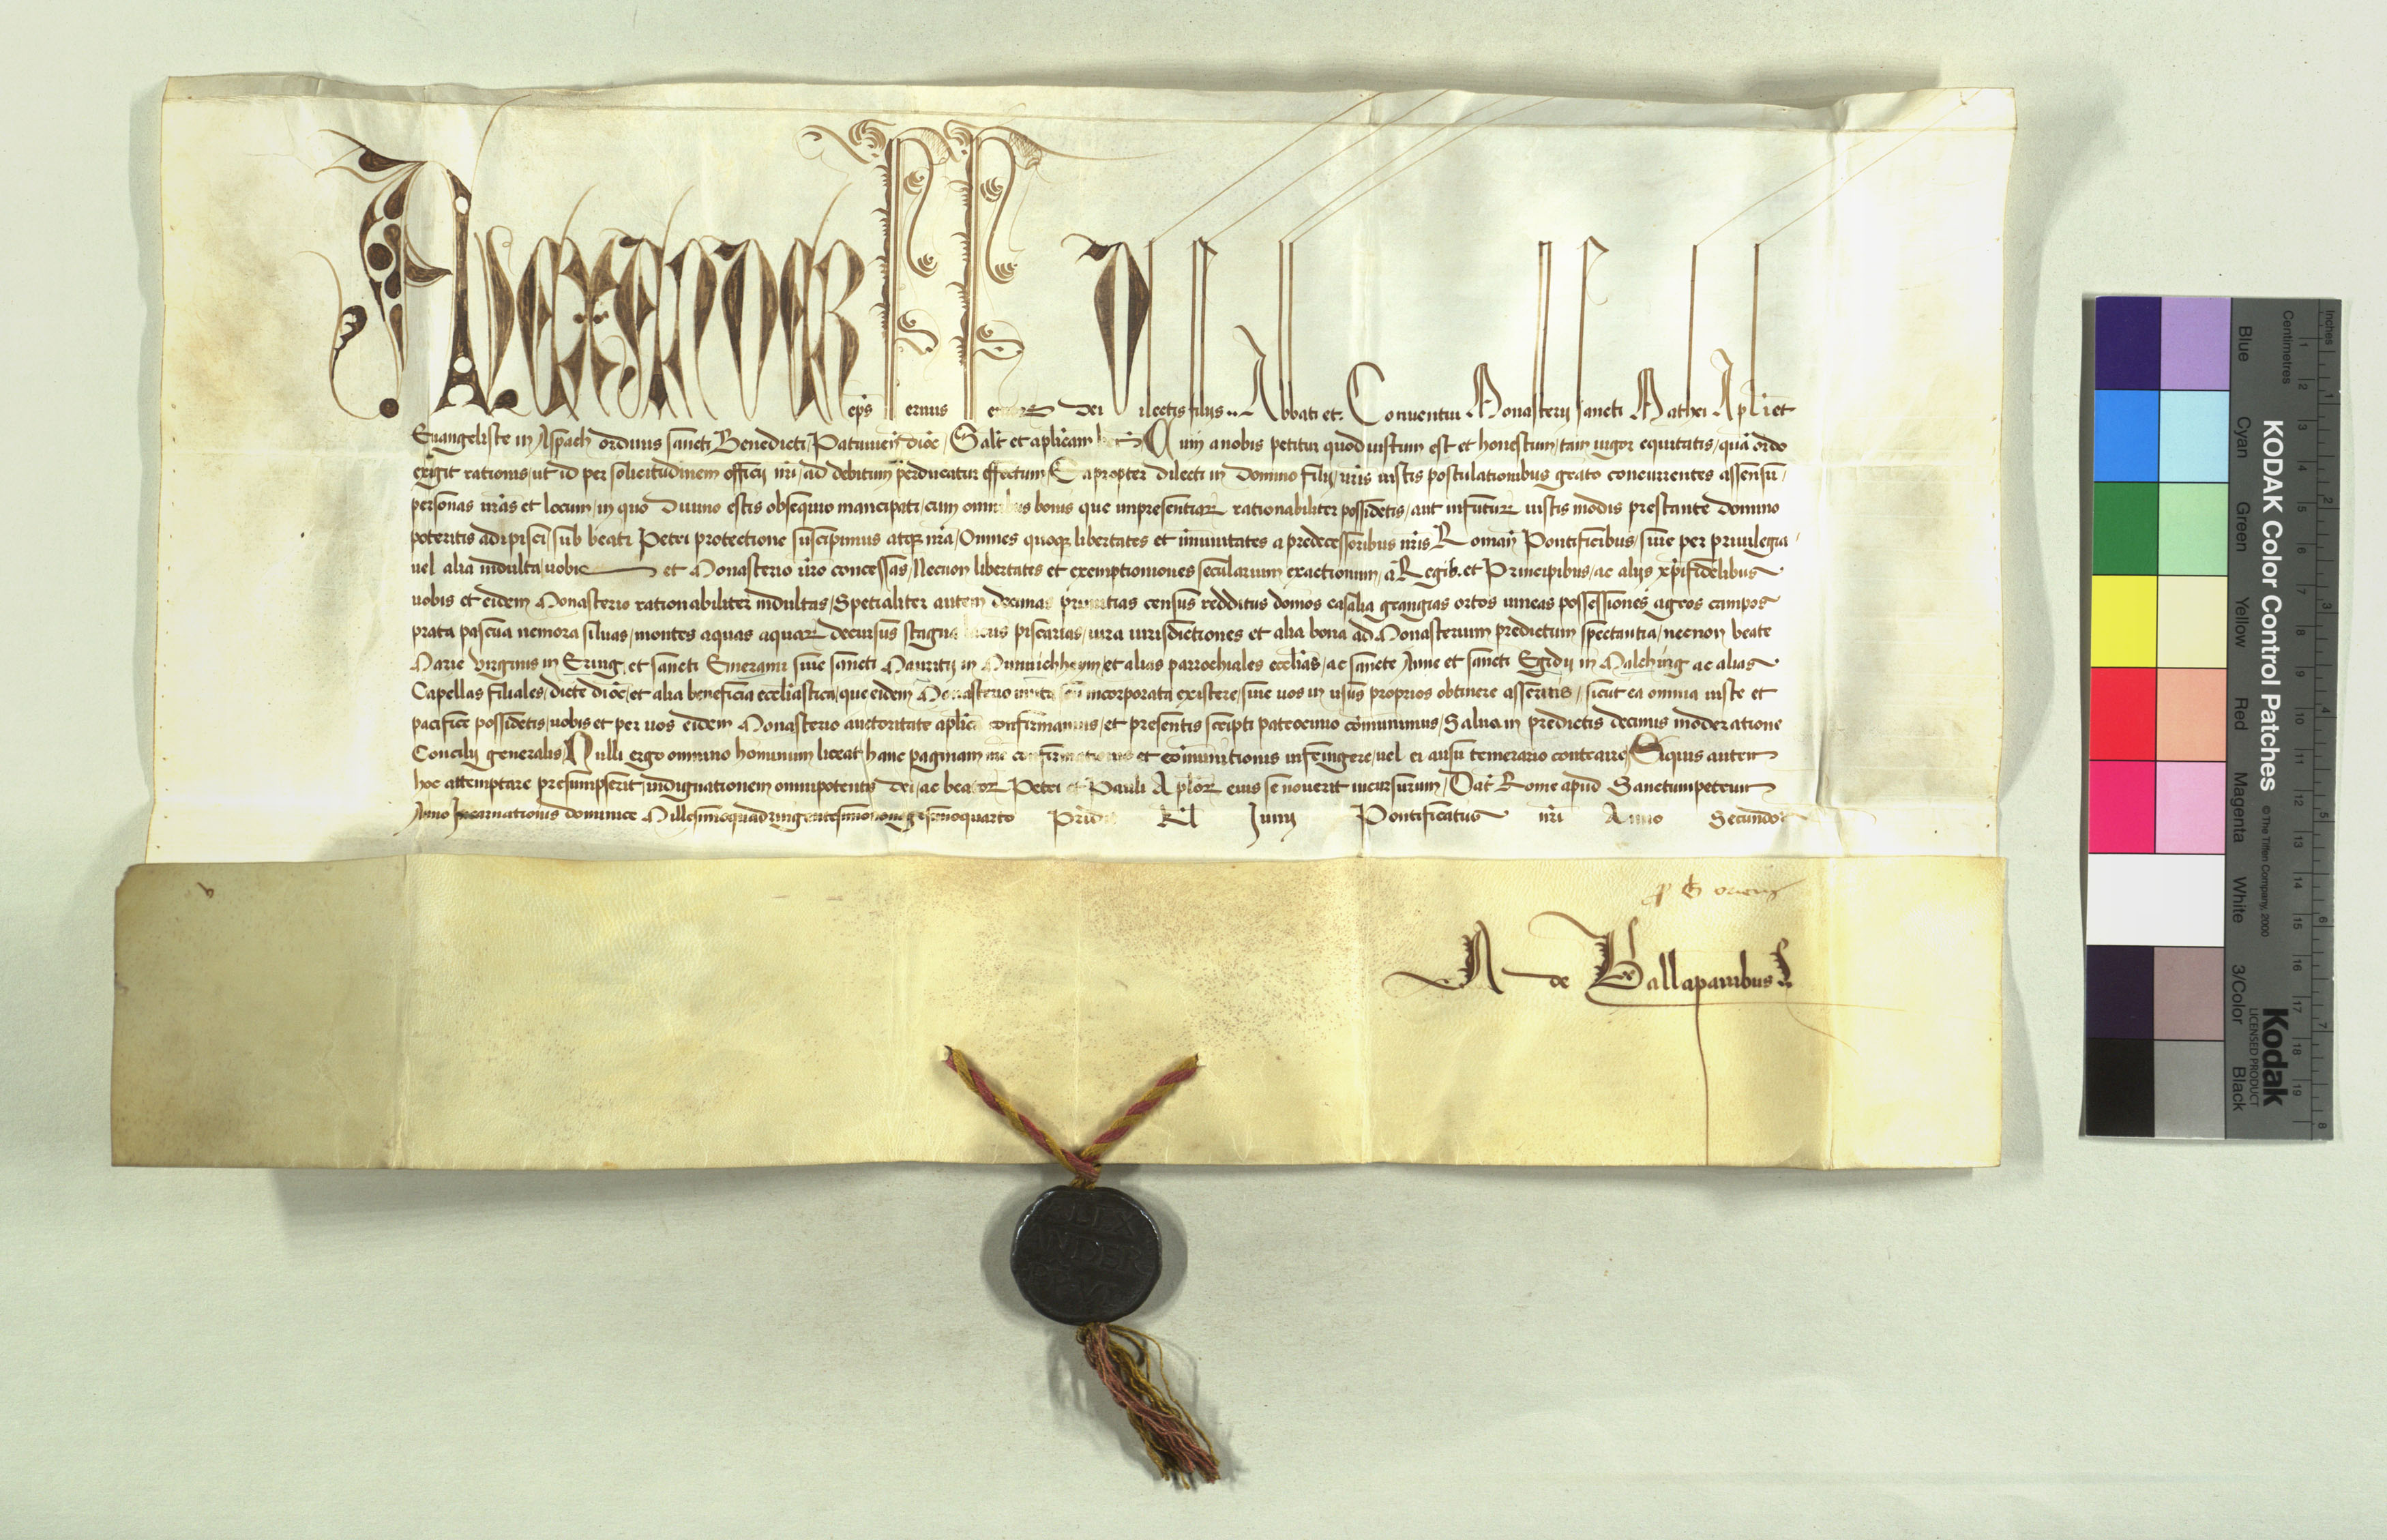 Alexander eps seruus seruorꝫ dei Dilectis filijs .. Abbati et . Conuentui Monasterij sancti Mathei Apli et
Euangeliste in Aspach ordinis sancti Benedicti, Patauien dioc, Salt et aplicam Cum a nobis petitur quod iustum est et honestum, tam uigor equitatis, quā ordo
exigit rationis, ut id per solicitudinem officij nri, ad debitum perducatur effectum, Eapropter dilecti in domino filij, uris iustis postulationibus grato concurrentes assensu,
personas uras et locum, in quo Diuino estis obsequio mancipati, cum omnibus bonis que impresentiarꝫ rationabiliter possidetis, aut infuturꝫ iustis modis prestante domino
poteritis adipisci, sub beati Petri protectione suscipimus atqꝫ nra, Omnes quoqꝫ libertates et imunitates a predecessoribus nris Roman Pontificibus, siue per priuilegia
uel alia indulta, uobis et Monasterio uro concessas, Necnon libertates et exemptiomones secularium exactionum, a Regib. et Principibus, ac alijs xpifidelibus
uobis et eidem Monasterio rationabiliter indultas, Spetialiter autem decimas primitias census redditus domos casalia grangias ortos uineas possessiones agros campos
prata pascua nemora siluas, montes aquas aquarꝫ decursus stagna lacus piscarias, iura iurisdictiones et alia bona ad Monasterium predictum spectantia, necnon beate
Marie Virginis in Ering, et sancti Emerami siue sancti Mauritij in Munnichheym, et alias parrochiales ecclias, ac sancte Anne et sancti Egidij in Malching ac alias
Capellas filiales, dicte dioc, et alia beneficia eccliastica, que eidem Monasterio unita seu incorporata existere, siue uos in usus proprios obtinere asseritis, sicut ea omnia iuste et
pacifice possidetis, uobis et per uos eidem Monasterio auctoritate aplica confirmamus, et presentis scripti patrocinio cōmunimus, Salua in predictis decimis moderatione
Concilij generalis, Nulli ergo omnino hominum liceat hanc paginam nre confirmationis et cōmunitionis infringere, uel ei ausu temerario contraire, Siquis autem
hoc attemptare presumpserit, indignationem omnipotentis dei, ac beatorꝫ Petri et Pauli Aplorꝫ eius se nouerit incursurum, Dat Rome apud Sanctumpetrum
Anno Incarnationis dominice Millesimoquadringentesimononagesimoquarto Pridie kl Junij Pontificatus nri Anno Secundo
A de Vallaparibus
ALEX
ANDER
PAPA VI
KODAK Color Control Patches © The Tiffen Company, 2000 Kodak
LICENSED PRODUCT
Blue Cyan Green Yellow Red Magenta White 3/Color Black
Inches 1 2 3 4 5 6 7 8
Centimetres 1 2 3 4 5 6 7 8 9 10 11 12 13 14 15 16 17 18 19